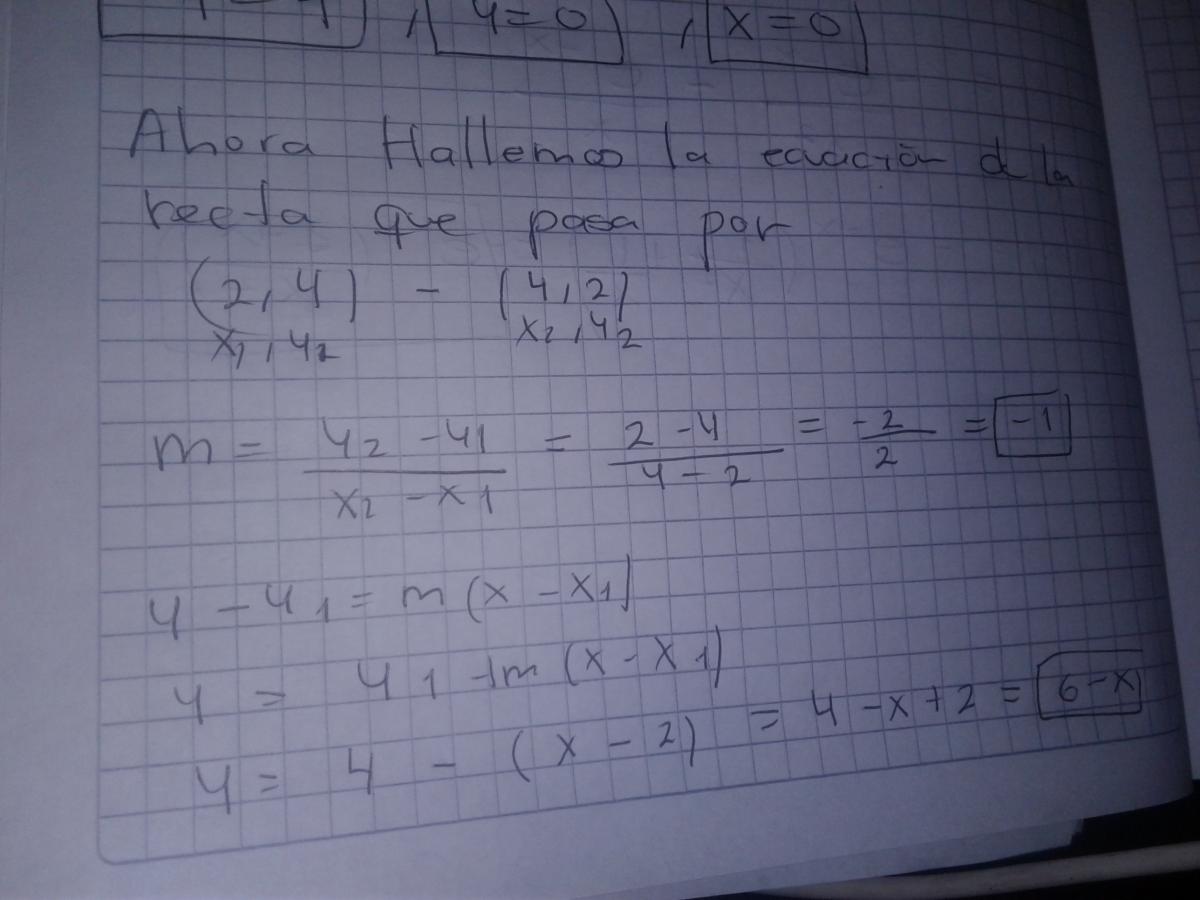 , y=0 , x=0
Ahora Hallemos la ecuación d la
recta que pasa por
(2,4) - (4,2)
x1,y2 x2,y2
m = y2 - y1 / x2 - x1 = 2-4 / 4-2 = -2 / 2 = -1
y - y1 = m(x - x1)
y = y1 +m (x - x1)
y = 4 - (x - 2) = 4 - x + 2 = 6-x